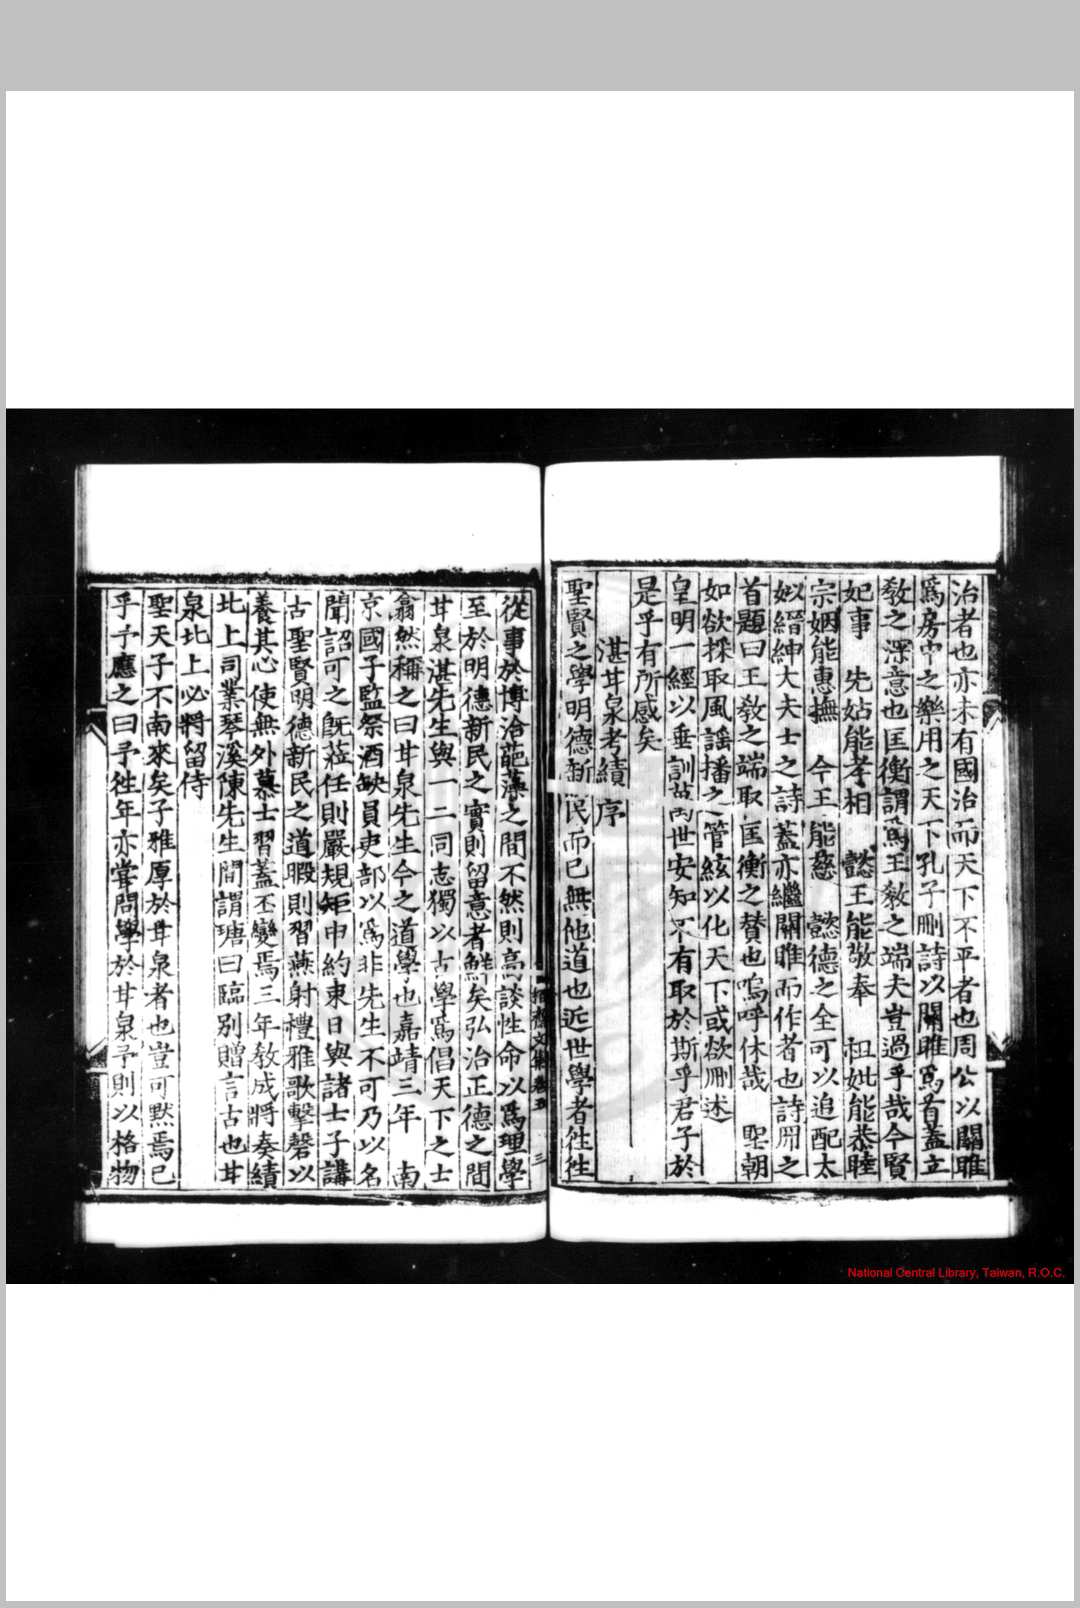 治者也亦未有國治而天下不平者也周公以關雎
爲房中之樂用之天下孔子刪詩以關雎爲首蓋立
教之深意也匡衡謂爲王教之端夫豈過乎哉今賢
妃事 先姑能孝相 懿王能敬奉 祖妣能恭睦
宗姻能惠撫 今王能慈 懿德之全可以追配太
姒縉紳大夫士之詩蓋亦繼關雎而作者也詩冊之
首題曰王教之端取匡衡之贊也嗚呼休哉 聖朝
如欲採取風謠播之管絃以化天下或欲刪述
皇明一經以垂訓萬世安知不有取於斯乎君子於
是乎有所感矣
湛甘泉考績序
聖賢之學明德新民而已無他道也近世學者徃徃
從事於博洽葩藻之間不然則高談性命以爲理學
至於明德新民之實則留意者鮮矣弘治正德之間
甘泉湛先生與一二同志獨以古學爲倡天下之士
翕然稱之曰甘泉先生今之道學也嘉靖三年 南
京國子監祭酒缺員吏部以爲非先生不可乃以名
聞詔可之既蒞任則嚴規矩申約束日與諸士子講
古聖賢明德新民之道暇則習燕射禮雅歌擊磬以
養其心使無外慕士習蓋丕變焉三年教成將奏績
北上司業琴溪陳先生間謂瑭曰臨別贈言古也甘
泉北上必將留侍
聖天子不南來矣子雅厚於甘泉者也豈可默焉已
乎予應之曰予徃年亦嘗問學於甘泉予則以格物
三